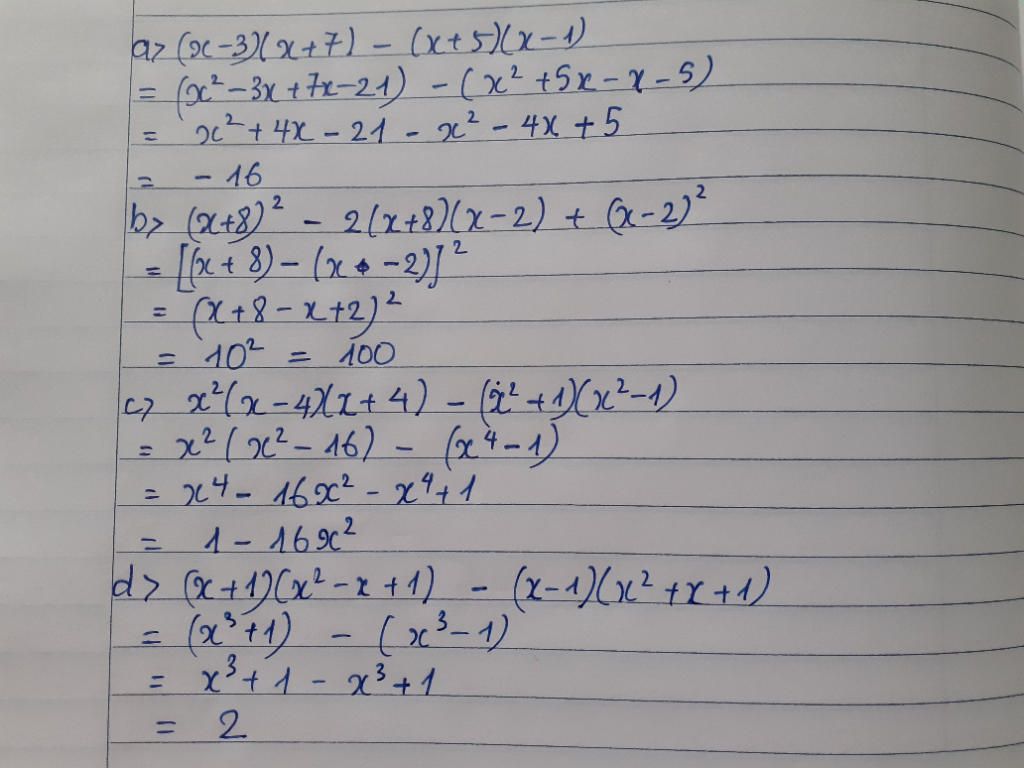 a> (x-3)(x+7) - (x+5)(x-1)
= (x² - 3x + 7x - 21) - (x² + 5x - x - 5)
= x² + 4x - 21 - x² - 4x + 5
= - 16
b> (x+8)² - 2(x+8)(x-2) + (x-2)²
= [(x+8) - (x - 2)]²
= (x+8 - x+2)²
= 10² = 100
c> x²(x-4)(x+4) - (x²+1)(x²-1)
= x²(x² - 16) - (x⁴ - 1)
= x⁴ - 16x² - x⁴ + 1
= 1 - 16x²
d> (x+1)(x² - x + 1) - (x-1)(x² + x + 1)
= (x³+1) - (x³-1)
= x³ + 1 - x³ + 1
= 2